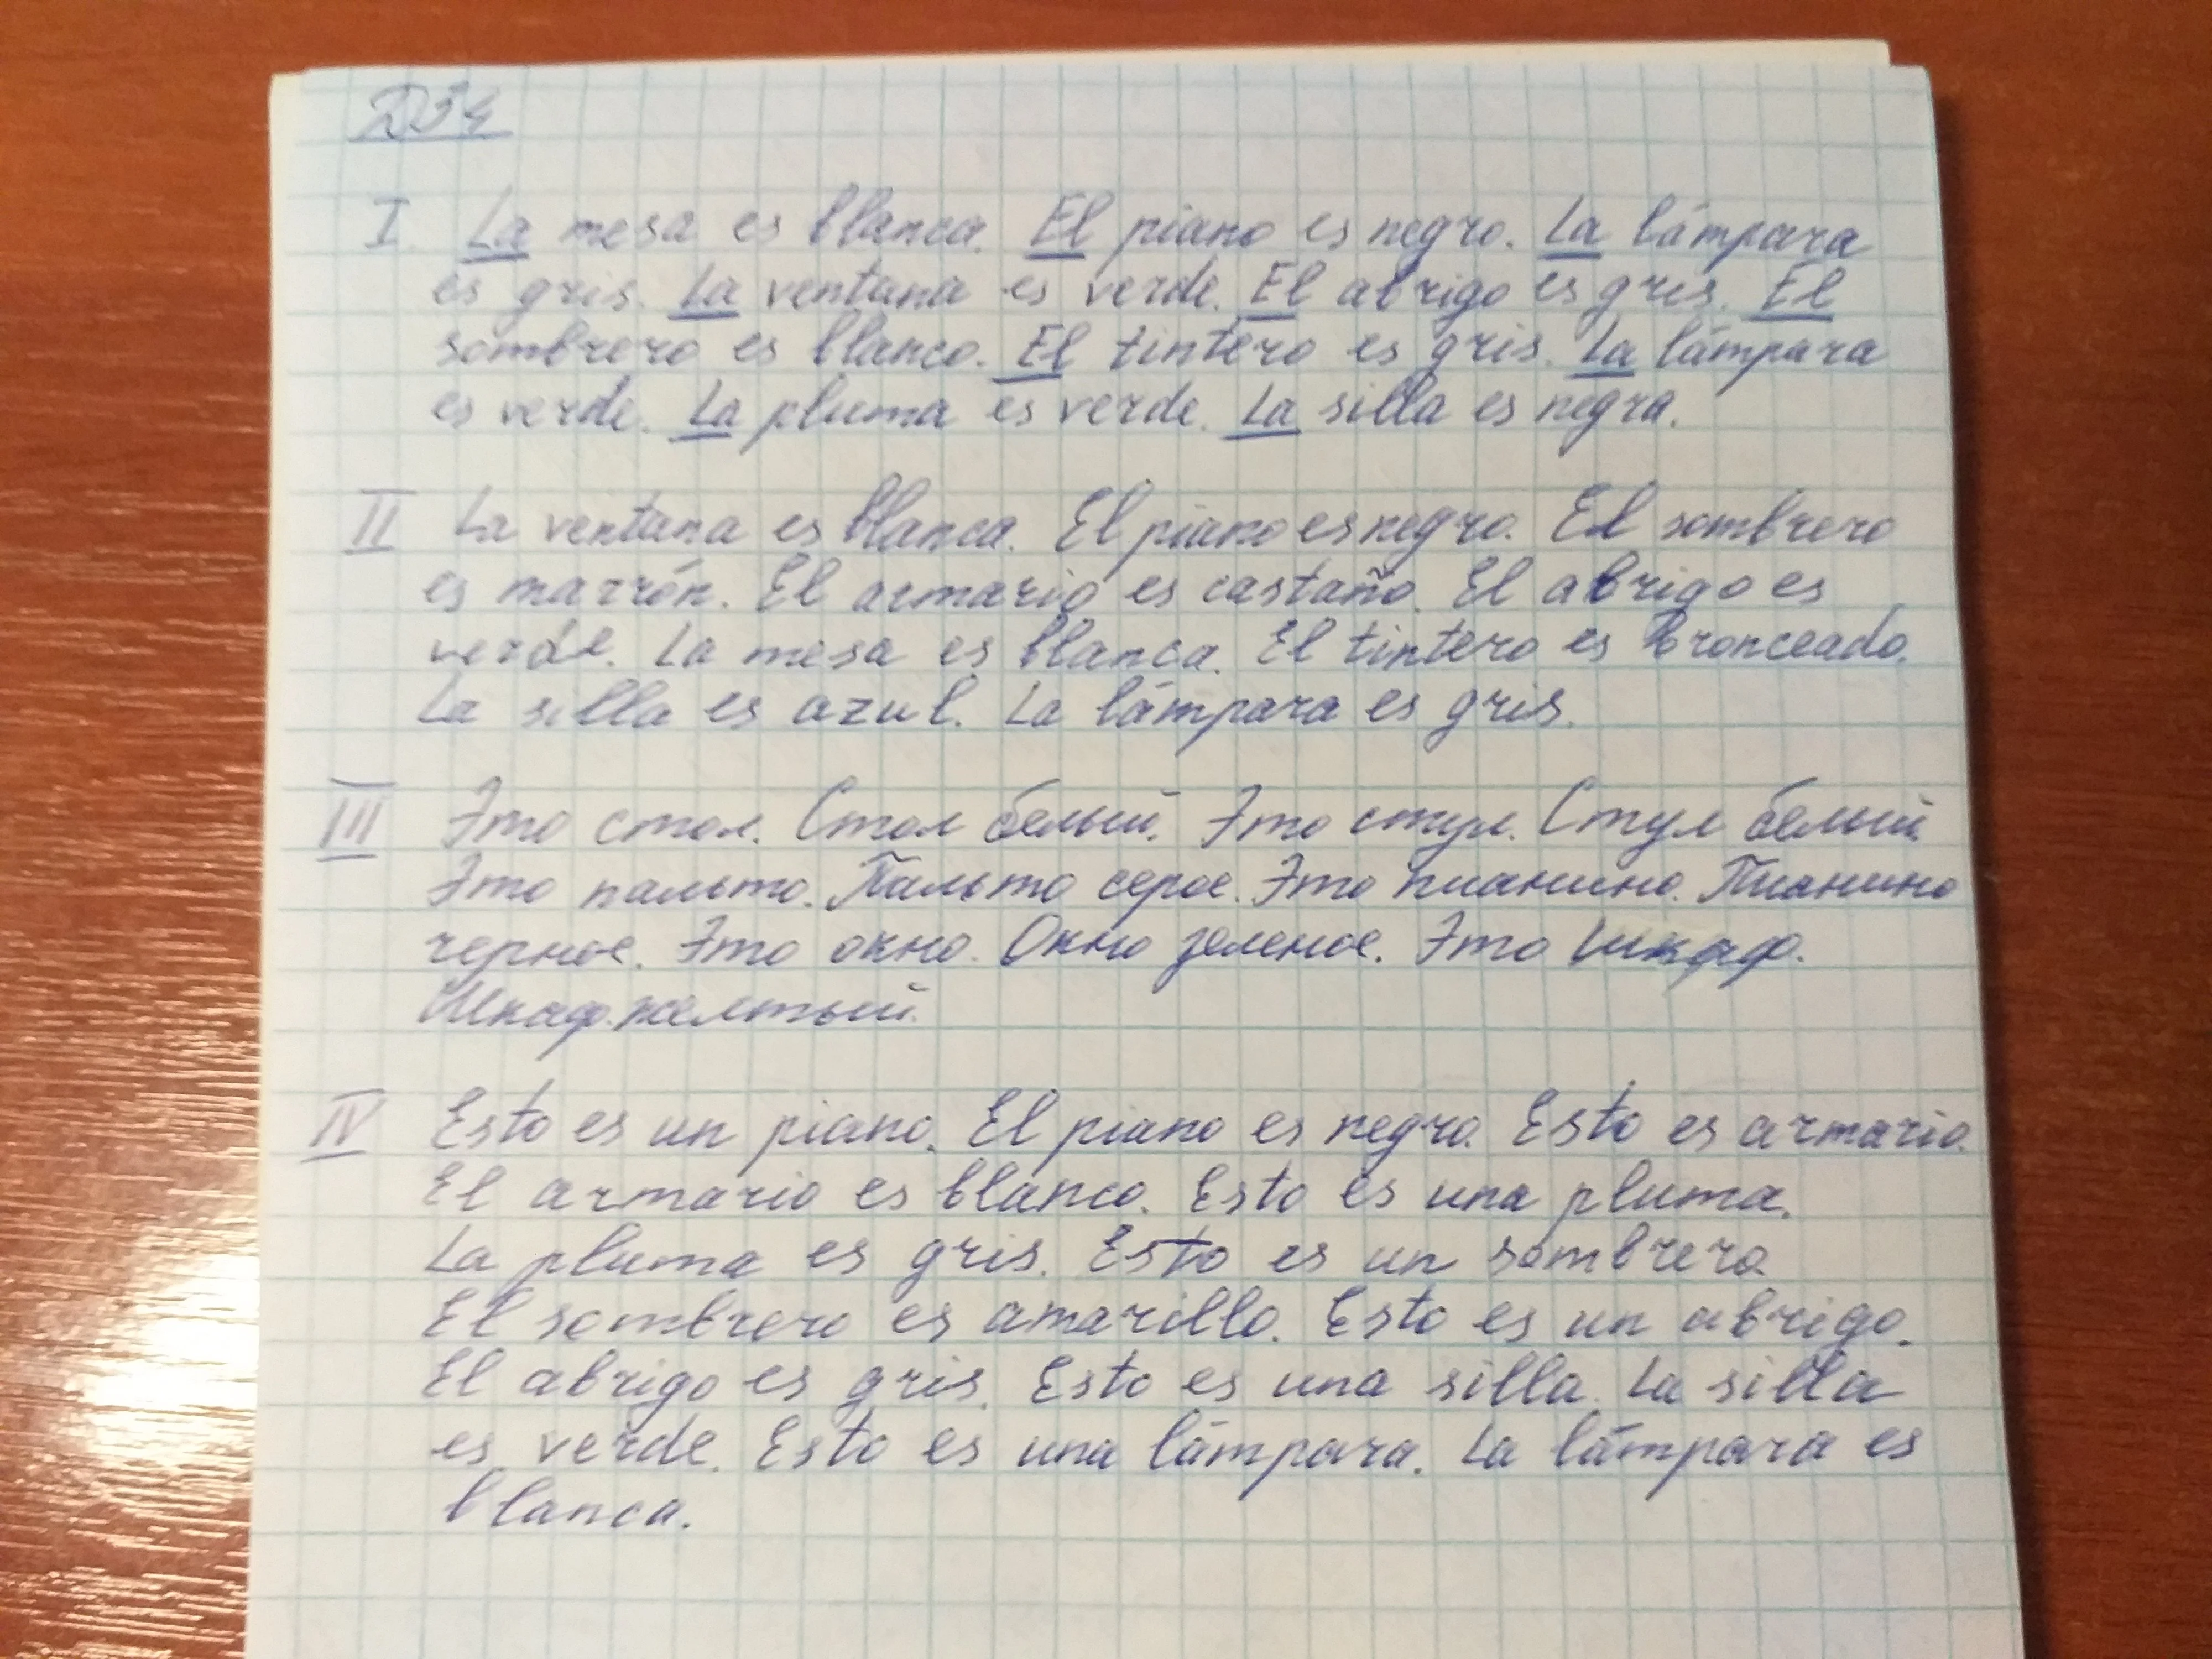 ДЗ 4
I. La mesa es blanca. El piano es negro. La lámpara
es gris. La ventana es verde. El abrigo es gris. El
sombrero es blanco. El tintero es gris. La lámpara
es verde. La pluma es verde. La silla es negra.
II La ventana es blanca. El piano es negro. El sombrero
es marrón. El armario es castaño. El abrigo es
verde. La mesa es blanca. El tintero es bronceado.
La silla es azul. La lámpara es gris.
III Это стол. Стол белый. Это стул. Стул белый.
Это пальто. Пальто серое. Это пианино. Пианино
черное. Это окно. Окно зеленое. Это шкаф.
Шкаф желтый.
IV Esto es un piano. El piano es negro. Esto es armario.
El armario es blanco. Esto es una pluma.
La pluma es gris. Esto es un sombrero.
El sombrero es amarillo. Esto es un abrigo.
El abrigo es gris. Esto es una silla. La silla
es verde. Esto es una lámpara. La lámpara es
blanca.